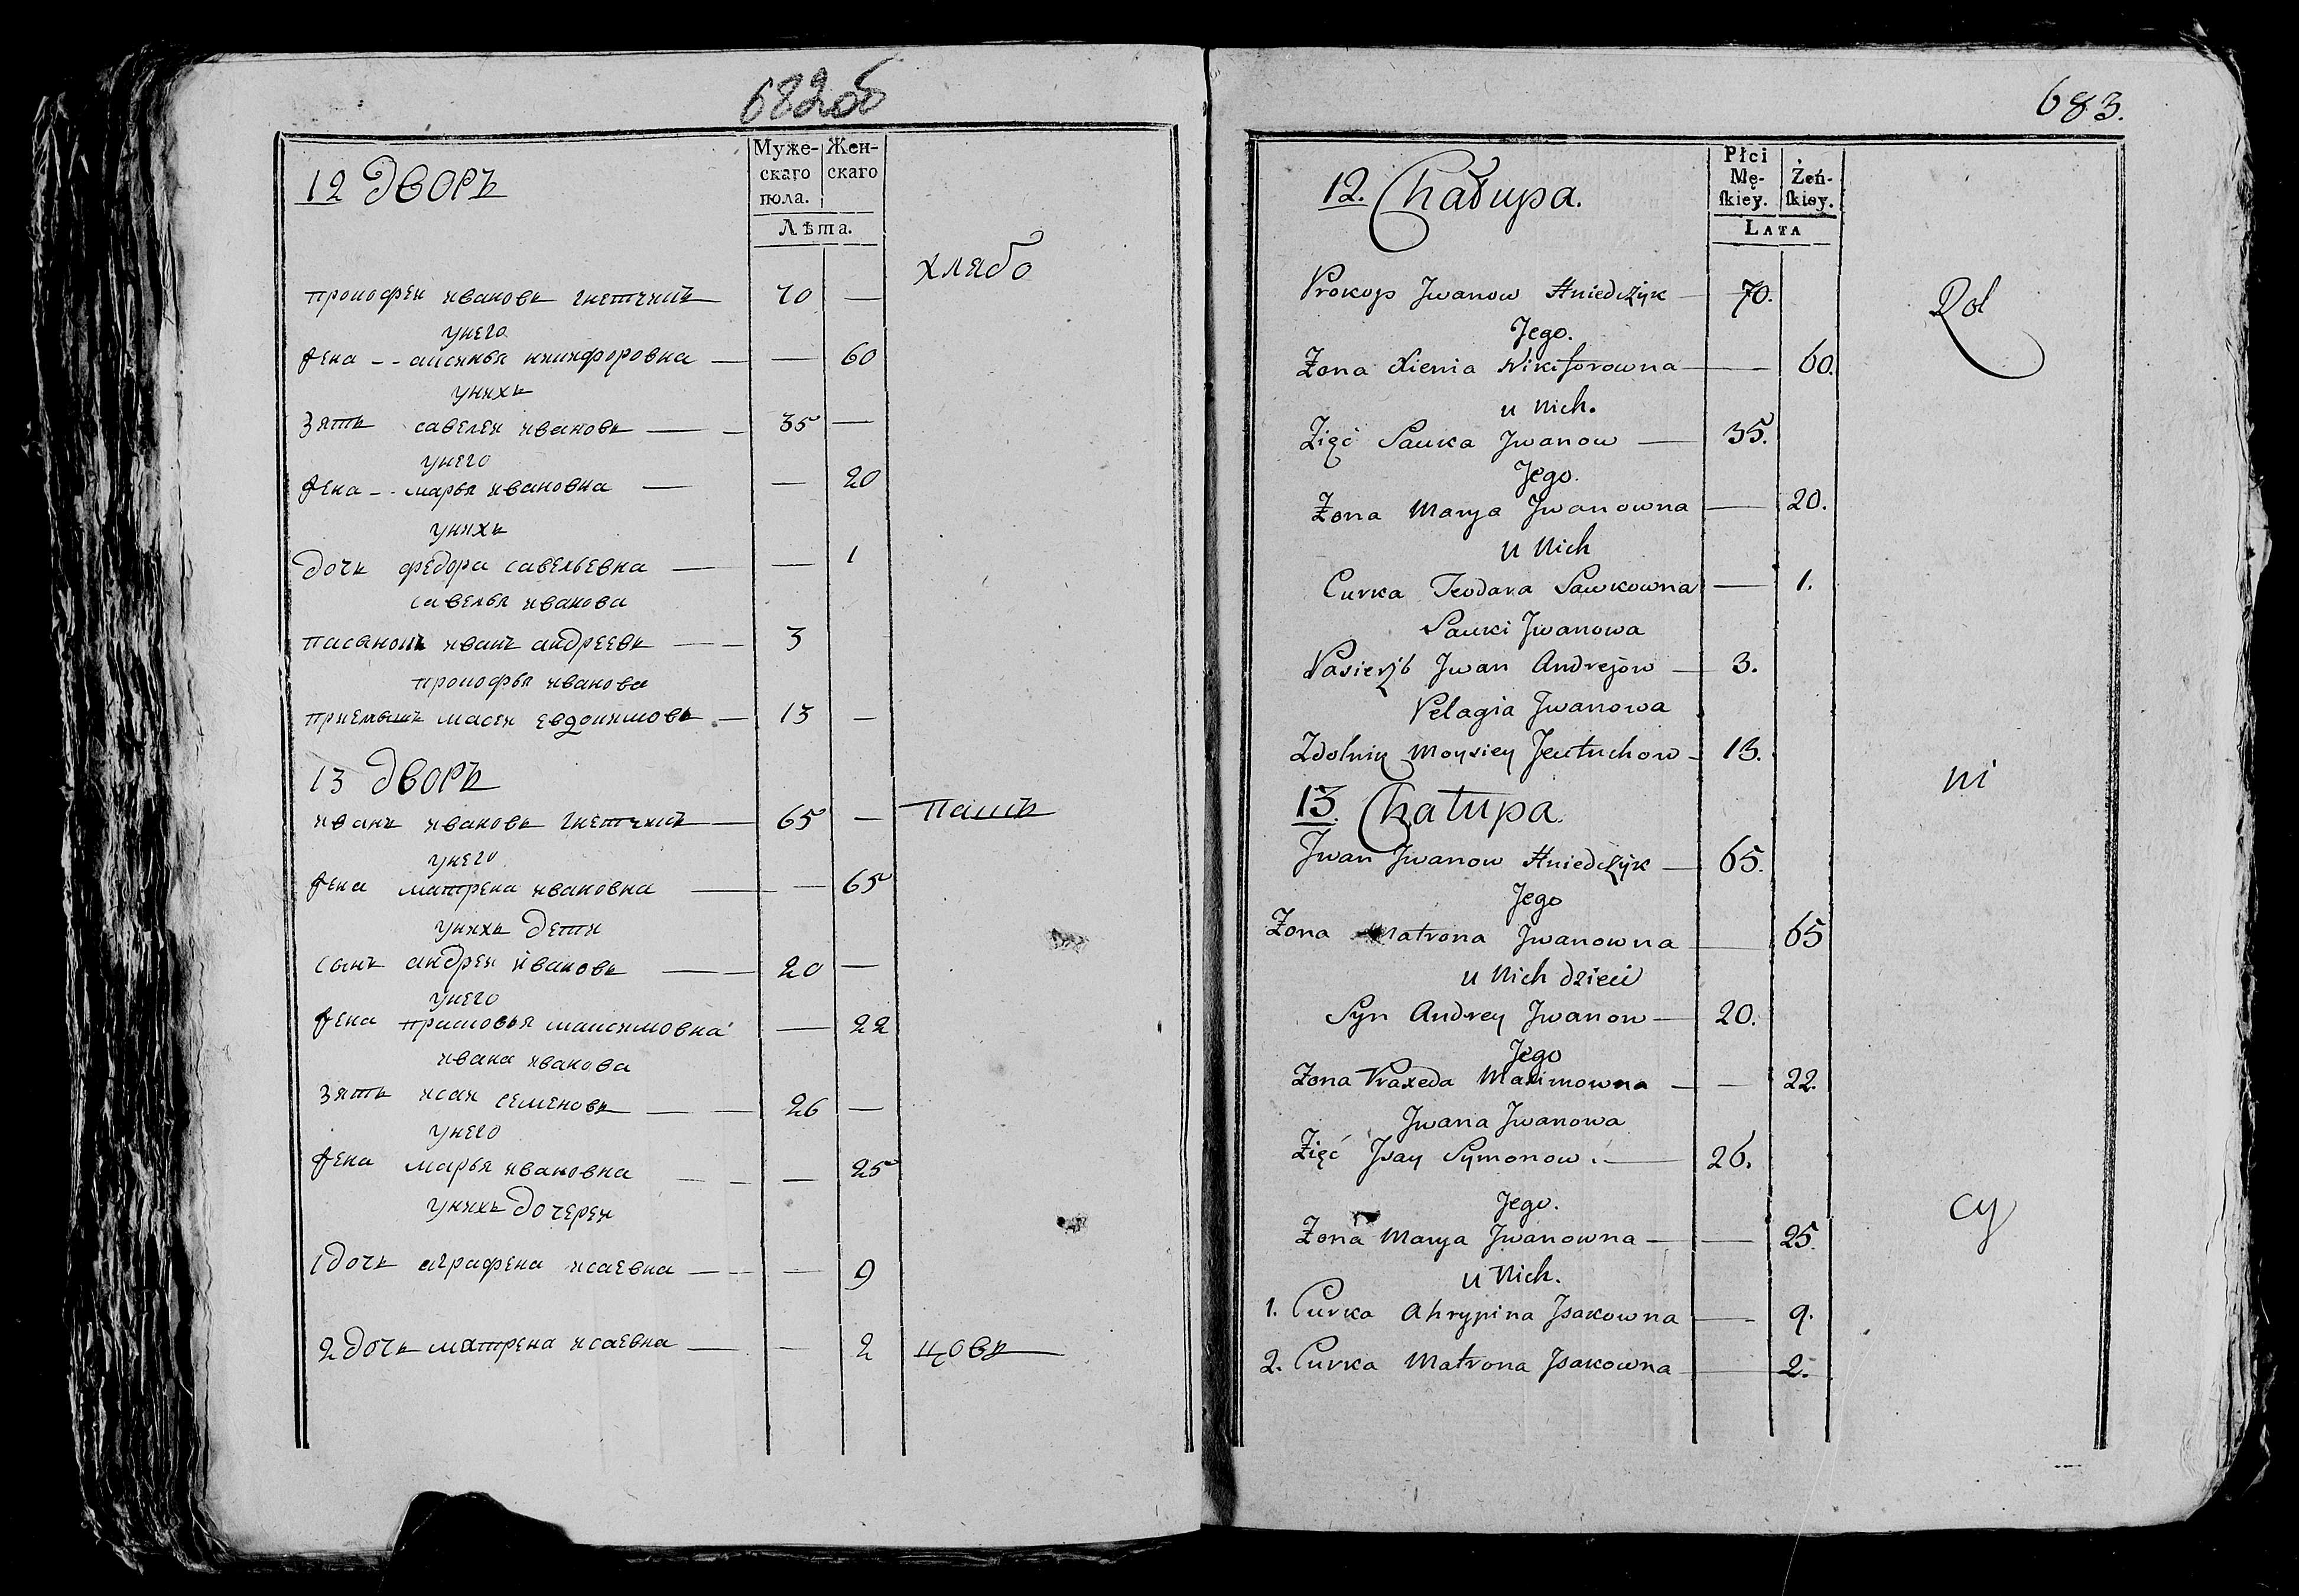 682об
Муже-
скаго
пола.
Жен-
скаго
Лѣта.
12 дворъ
хлябо
прокофеи ивановъ гнетчикъ 70 —
унего
жена -- аксинья никифоровна — — 60
унихъ
зять савелеи ивановъ — 35 —
унего
жена -- марья ивановна — — 20
унихъ
дочь федора савельевна — — 1
савелья иванова
пасынокъ иванъ андреевъ — 3
прокофья иванова
приемышъ масеи евдокимовъ — 13 —
13 дворъ
иванъ ивановъ гнетчикъ — 65 — пашъ
унего
жена матрена ивановна — — 65
унихъ дети
сынъ андреи ивановъ — 20 —
унего
жена прасковья максимовна — 22
ивана иванова
зять исаи семеновъ — 26 —
унего
жена марья ивановна — — 25
унихъ дочереи
1 дочь аграфена исаевна — — 9
2 дочь матрена исаевна — — 2 цовъ
683.
Płci
Mę-
ſkiey.
Żeń-
ſkiey.
LATA
12. Chałupa.
Prokop Jwanow Hniedczyk — 70. Rol
Jego.
Żona Xienia Nikiforowna — 60.
u Nich.
Zięć Sawka Jwanow — 35.
Jego.
Żona Marya Jwanowna — 20.
u Nich
Curka Teodara Sawkowna — 1.
Sawki Jwanowa
Pasierzb Jwan Andrejow — 3.
Pelagia Jwanowa
Zdolnik Moysiey Jewtuchow — 13.
ni
13. Chałupa.
Jwan Jwanow Hniedczyk — 65.
Jego
Żona Matrona Jwanowna — 65
u Nich dzieci
Syn Andrey Jwanow — 20.
Jego
Żona Praxeda Maximowna — — 22.
Jwana Jwanowa
Zięć Jsay Symonow. — 26.
Jego.
cy
Żona Marya Jwanowna — — 25.
u Nich.
1. Curka Ahrypina Jsakowna — 9.
2. Curka Matrona Jsakowna — 2.